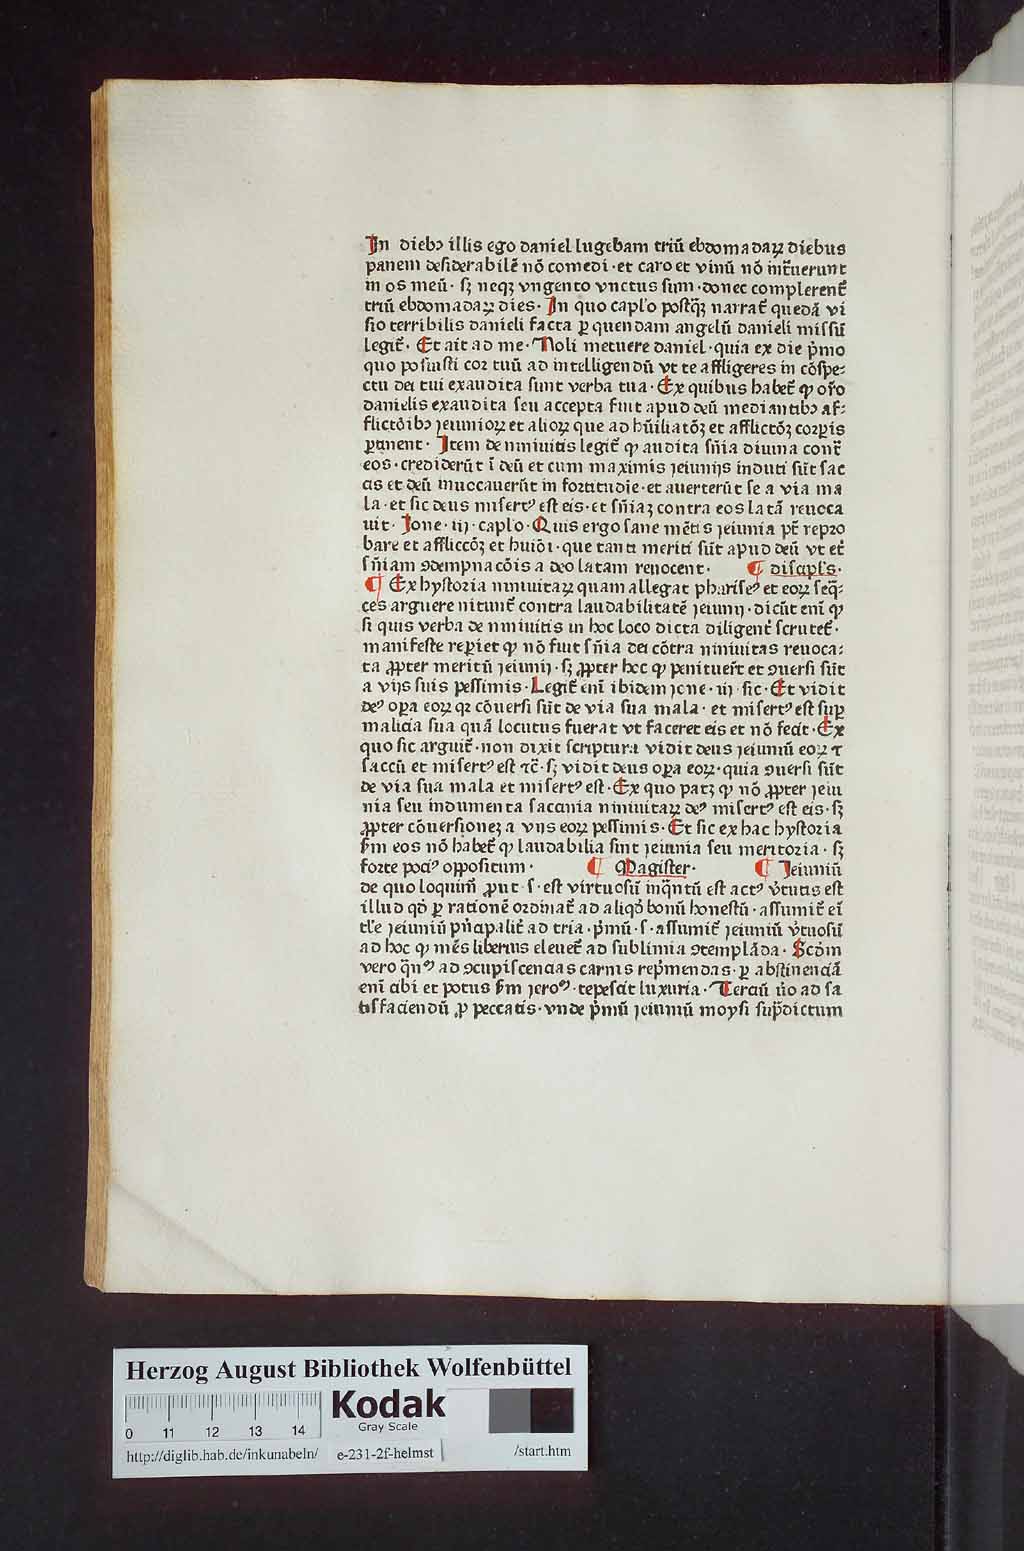 In dieb⁹ illis ego daniel lugebam triū ebdomadaꝝ diebus
panem desiderabilē nō comedi · et caro et vinū nō int̄uerunt
in os meū · sꝫ neqꝫ vngento vnctus sum · donec complerent̄
triū ebdomadaꝝ dies · In quo caplo postqꝫ narrat̄ quedā vi
sio terribilis danieli facta ꝑ quendam angelū danieli missū
legit̄ · Et ait ad me · Noli metuere daniel · quia ex die p̄mo
quo posuisti cor tuū ad intelligendū vt te affligeres in cōspe⸗
ctu dei tui exaudita sunt verba tua · Ex quibus habet̄ ꝙ or̄o
danielis exaudita seu accepta fuit apud deū mediantib⁹ af⸗
flictōib⁹ ieiunioꝝ et alioꝝ que ad hūiliatōꝫ et afflictōꝫ corꝑis
ꝑtinent · Item de niniuitis legit̄ ꝙ audita sn̄ia diuina cont̄
eos · crediderūt ī deū et cum maximis ieiunijs induti sūt sac
cis et deū inuocauerūt in fortitudīe · et auerterūt se a via ma
la · et sic deus misert⁹ est eis · et sn̄iaꝫ contra eos latā reuoca
uit · Ione · iij · caplo · Quis ergo sane mētis ieiunia pt̄ repro
bare et affliccōꝫ et huiōi · que tanti meriti sūt apud deū vt et̄
sn̄iam ꝯdempnacōis a deo latam reuocent · ¶ discipls̄ ·
¶ Ex hystoria niniuitaꝝ quam allegat pharise⁹ et eoꝝ seq̄⸗
ces arguere nitunt̄ contra laudabilitatē ieiunij · dicūt enī ꝙ
si quis verba de niniuitis in hoc loco dicta diligent̄ scrutet̄ ·
manifeste reꝑiet ꝙ nō fuit sn̄ia dei cōtra niniuitas reuoca⸗
ta ꝓpter meritū ieiunij · sꝫ ꝓpter hec ꝙ penituer̄t et ꝯuersi sūt
a vijs suis pessimis · Legit̄ enī ibidem ione · iij · sic · Et vidit
de⁹ oꝑa eoꝝ qꝛ cōuersi sūt de via sua mala · et misert⁹ est suꝑ
malicia sua quā locutus fuerat vt faceret eis et nō fecit · Ex
quo sic arguit̄ · non dixit scriptura vidit deus ieiuniū eoꝝ ⁊
saccū et misert⁹ est ⁊c̄ · sꝫ vidit deus oꝑa eoꝝ · quia ꝯuersi sūt
de via sua mala et misert⁹ est · Ex quo patꝫ ꝙ nō ꝓpter ieiu
nia seu indumenta saccinia niniuitaꝝ de⁹ misert⁹ est eis · sꝫ
ꝓpter cōuersioneꝫ a vijs eoꝝ pessimis · Et sic ex hac hystoria
fm̄ eos nō habet̄ ꝙ laudabilia sint ieiunia seu meritoria · sꝫ
forte poci⁹ oppositum · ¶ Magister · ¶ Ieiuniū
de quo loquim̄ ꝓut · s · est virtuosū inq̄ntū est act⁹ v̄tutis est
illud qd̄ ꝑ rationē ordinat̄ ad aliqd̄ bonū honestū · assumit̄ eī
tl̄e ieiuniū pn̄cipalit̄ ad tria · p̄mū · s · assumit̄ ieiuniū v̄tuosū
ad hoc ꝙ mēs liberius eleuet̄ ad sublimia ꝯtemplāda · Scd̄m
vero q̄n⁹ ad ꝯcupiscencias carnis rep̄mendas · ꝑ abstinenciā
enī cibi et potus fm̄ iero⁹ · tepescit luxuria · Terciū v̄o ad sa
tisfaciendū ꝓ peccatis · vnde p̄mū ieiuniū moysi sup̄dictum
Herzog August Bibliothek Wolfenbüttel
Kodak
Gray Scale
0 11 12 13 14
http://diglib.hab.de/inkunabeln/ e-231-2f-helmst /start.htm